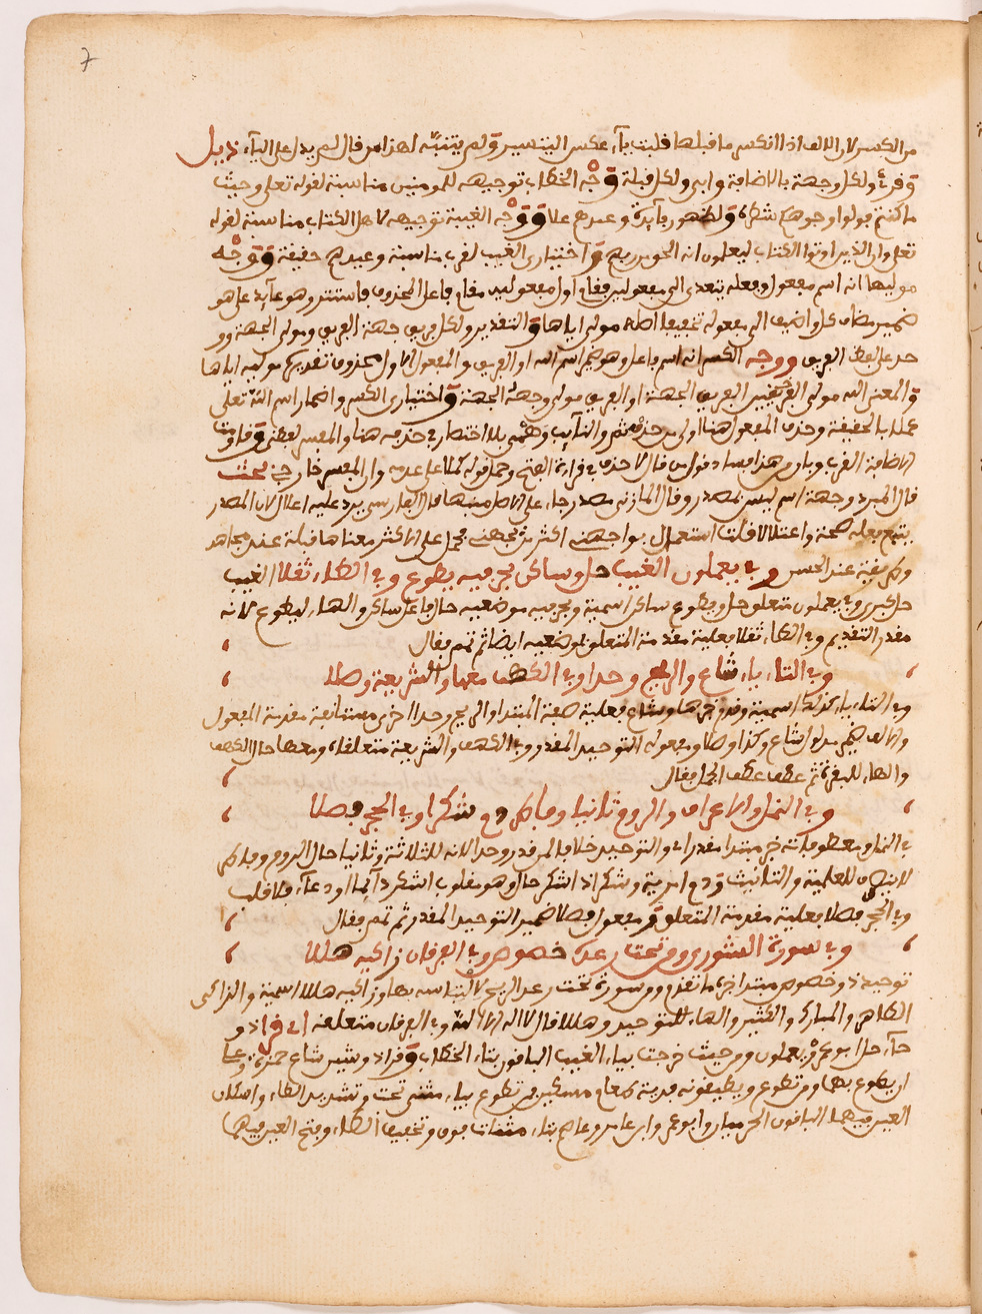 7
من الكسر لان الالف اذا انكسر ما قبلها قلبت ياء عكس التيسير ولم يتنبه لهذا من قال لم يدل على الياء ذيل
وقرئ ولكل وجهة بالاضافة وابى ولكل قبلة وجه الخطاب توجيهه للمومنين مناسبة لقوله تعلى وحيث
ما كنتم فولوا وجوهكم شطره ولظهور وعدهم علا ووجه الغيبة توجيهه لاهل الكتاب مناسبة لقوله
تعلى وان الذين اوتوا الكتاب ليعلمون انه الحق من ربهم واختياري الغيب لقرب مناسبة وعيدهم حقيقة ووجه
موليها انه اسم مفعول وفعله يتعدى الى مفعولين فقام اول مفعوليه مقام فاعل المحذوف فاستتر وهو عائد على هو
ضمير مضاف كل واضيف الى مفعوله تخفيفا اصله مولى اياها والتقدير ولكل فريق جهة الفريق مولى الجهة وو
حد على لفظ الفريق ووجه الكسر انه اسم فاعل وهو ضمير اسم الله او الفريق والمفعول الاول محذوف تقديره موليه اياها
والمعنى الله مولى الفريق الجهة او الفريق مولى وجهه الجهة واختياري الكسر واضمار اسم الله تعلى
عملا بالحقيقة وحذف المفعول هنا اولى من حذفه ثم
الاضافة القرب وبان من هذا فساد قول من قال لا حذف في قراءة الفتح وحمل قوله كملا على عدمه وان المفسر خارجي بحث
قال المبرد وجهة اسم ليس لمصدر وقال المازني مصدر جاء على الاصل منبها قال الفارسي يرد عليه اعلال لان المصدر
يتبع فعله صحة واعتلالا قلت استعمال بواجهني اكثر من يجهني فحمل على الاكثر معناها قبلة عند مجاهد
وطريقة عند الحسن وفي يعملون الغيب حل وساكن بحرفيه يطوع وفي الطاء ثقلا الغيب
حل كبرى وفي يعملون متعلق حل ويطوع ساكن اسمية وبحرفيه موضعيه حال فاعل ساكن والهاء ليطوع لانه
مقدر التقديم وفي الطاء ثقلا فعلية مقدمة المتعلق لموضعيه ايضا ثم تمم فقال
وفي التاء ياء شاع والريح وحدا وفي الكهف معها والشريعة وصلا
وفي التاء ياء كذلك اسمية وقد خبرها وشاع فعلية صفة المبتدا والريح وحدا اخرى مستانفة مقدمة المفعول
والالف ضمير مدلول شاع وكذا وصلا ومفعوله التوحيد المقدر وفي الكهف والشريعة متعلقاه ومعها حال الكهف
والهاء للبقرة ثم عطف عطف الجمل فقال
وفي النمل والاعراف والروم ثانيا وفاطر دم شكرا وفي الحجر فصلا
في النمل ومعطوفاته خبر مبتدا مقدر اي والتوحيد خلافا لمن قدر وحدا لانه للثلاثة وثانيا حال الروم وفاطر
لا ينصرف للعلمية والتانيث ودم امرية وشكرا ذا شكر حال وهو مقلوب اشكر دائما او دعاء فلا قلب
وفي الحجر فصلا فعلية مقدمة المتعلق ومفعول فصلا ضمير التوحيد المقدر ثم تمم فقال
وفي سورة الشورى ومن تحت رعده خصوص وفي الفرقان زاكيه هللا
توحيد ذو خصوص مبتدا خبره ما تقدم ومن سورة تحت رعد الريح لالتباسه بها وزاكيه هللا اسمية والزاكي
الطاهر والمبارك والكثير والهاء للتوحيد وهللا قال لا اله الا الله وفي الفرقان متعلقه اي قرا ذو
حاء حل ابو عمرو يعملون ومن حيث خرجت بياء الغيب الباقون بتاء الخطاب وقرا ذو شين شاع حمزة وعلي
ان يطوع بهما ومن تطوع ويطيقونه فدية طعام مسكين فمن تطوع بياء مثنى تحت وتشديد الطاء واسكان
العين فيهما الباقون الحرميان وابو عمرو وابن عامر وعاصم بتاء مثنات فوق وتخفيف الطاء وفتح العين فيهما